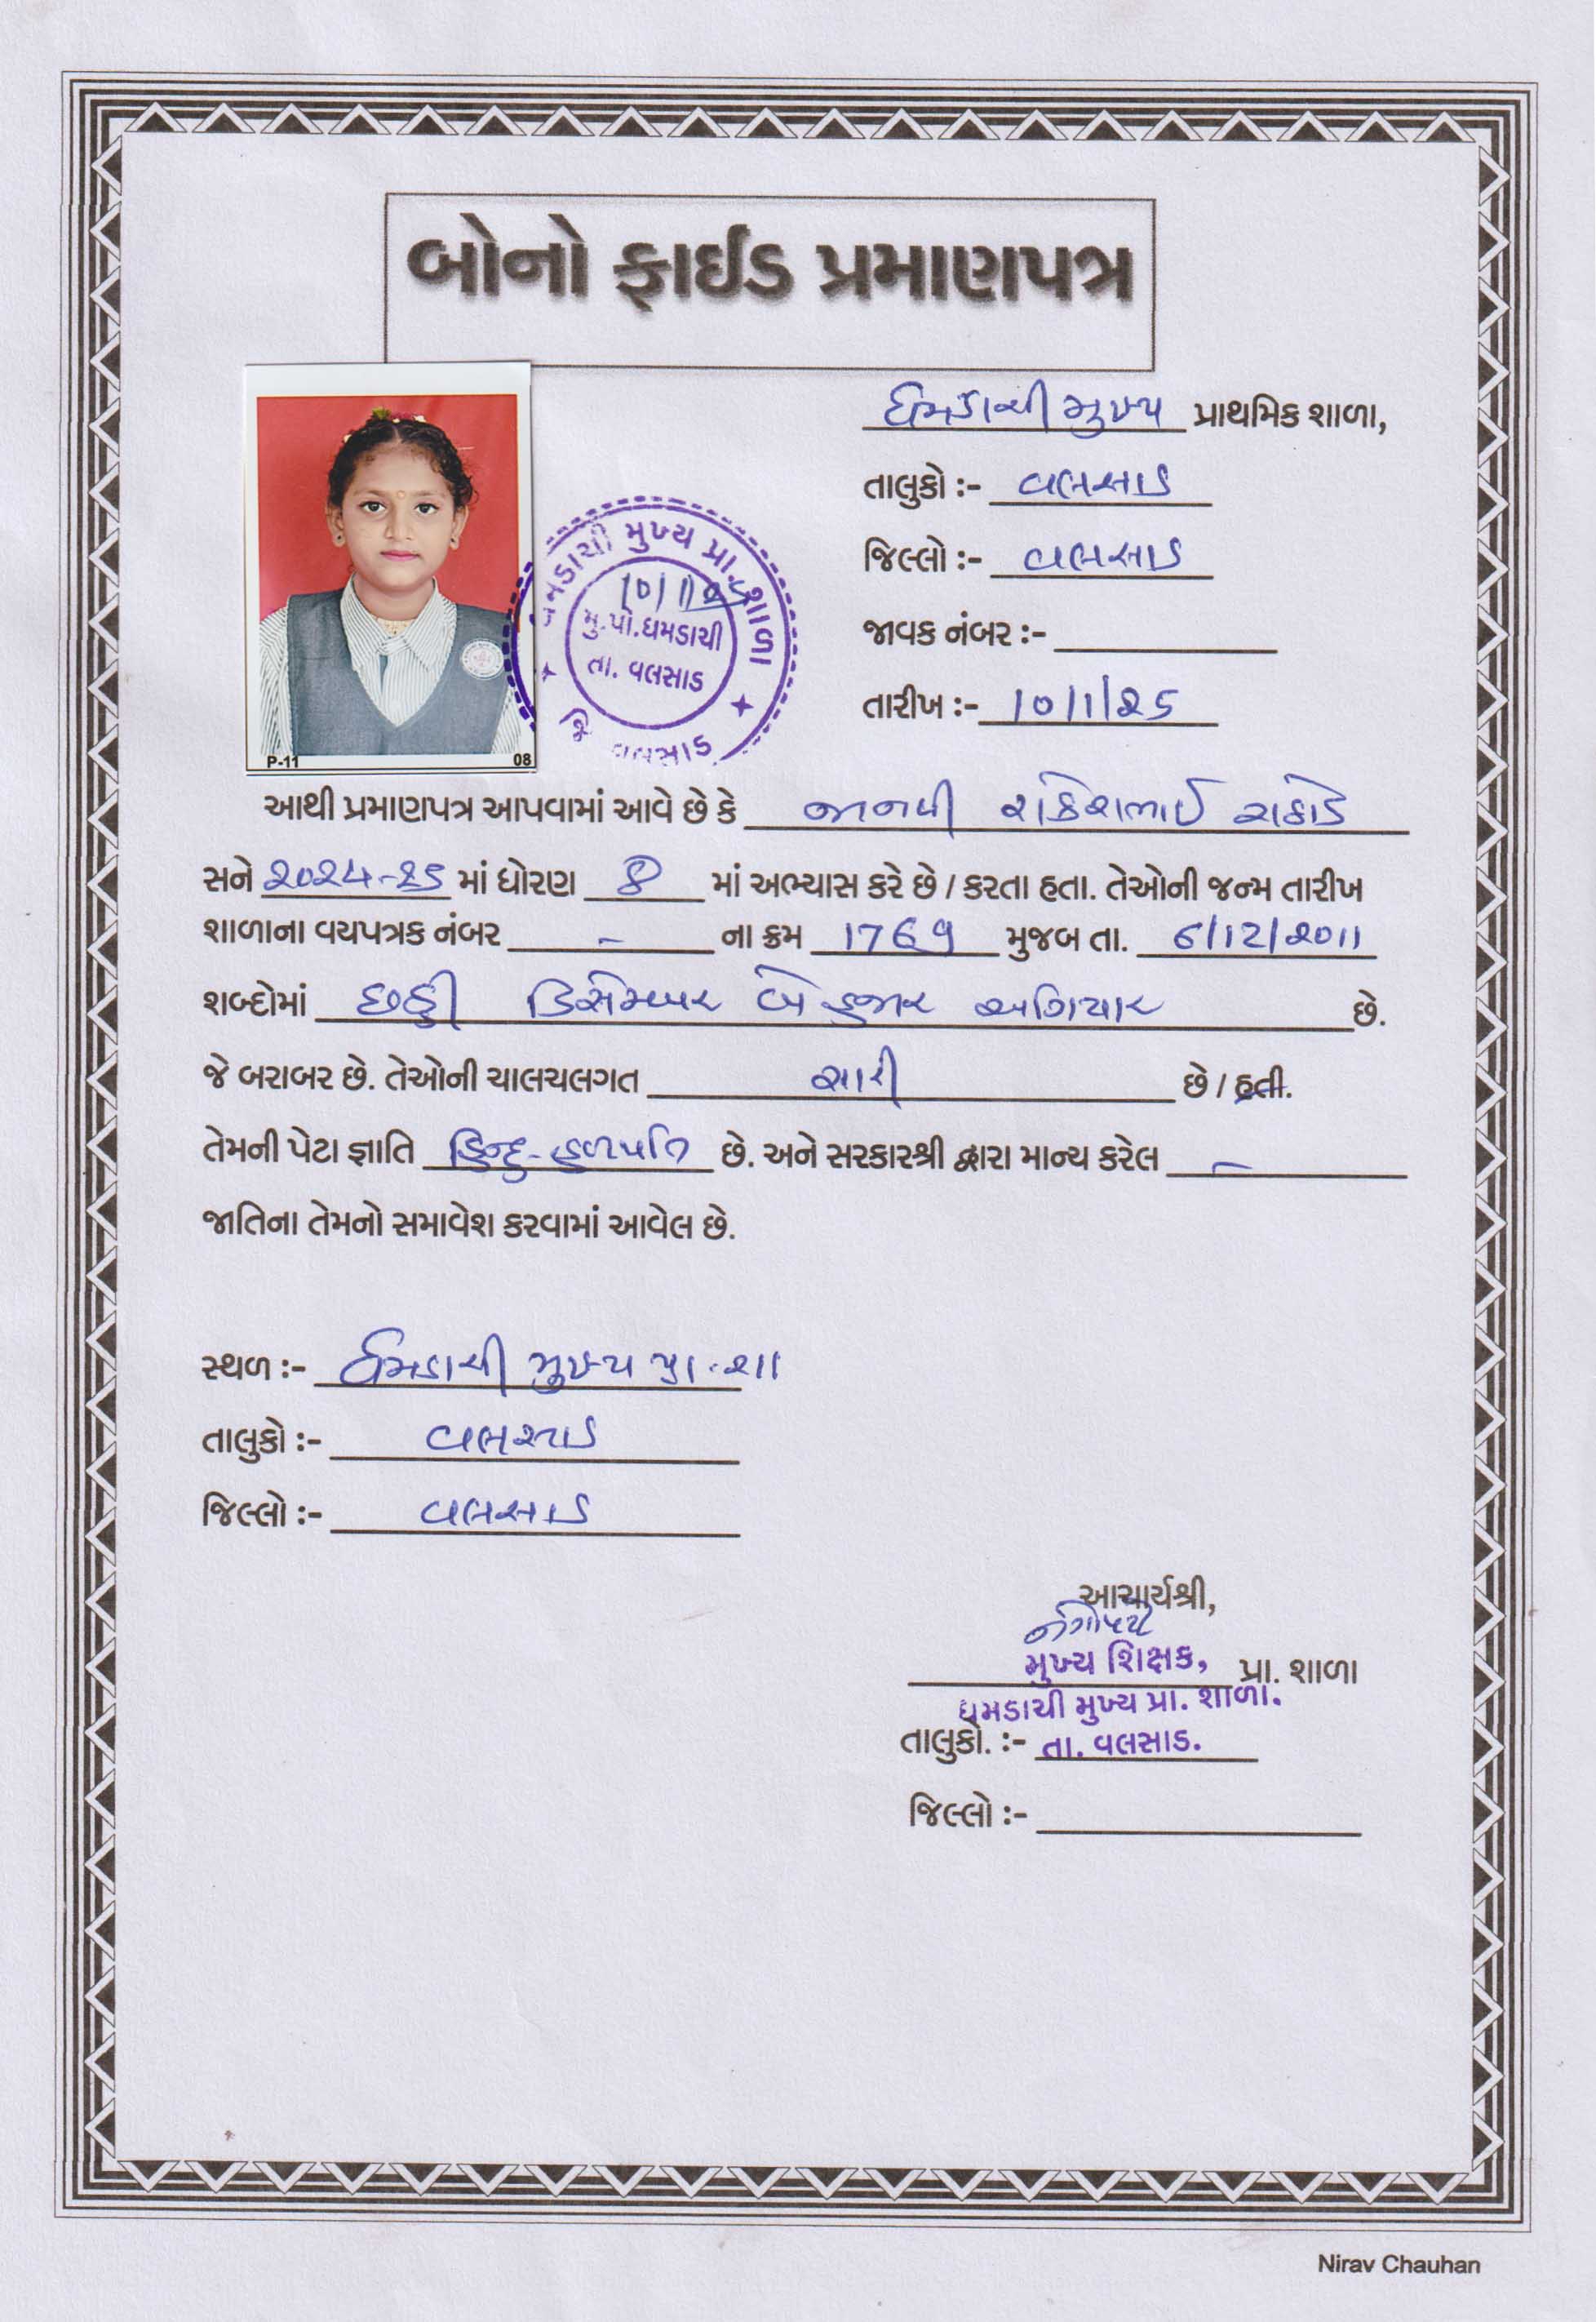 બોનો ફાઈડ પ્રમાણપત્ર
ધમડાચી મુખ્ય પ્રાથમિક શાળા,
તાલુકો :- વલસાડ
જિલ્લો :- વલસાડ
જાવક નંબર :-
તારીખ :- 10/1/૨૫
ધમડાચી મુખ્ય પ્રા. શાળા
10/1/૨૫
મુ.પો.ધમડાચી
તા. વલસાડ
જિ વલસાડ.
P-11 08
આથી પ્રમાણપત્ર આપવામાં આવે છે કે જાનવી રાકેશભાઈ રાઠોડ
સને ૨૦૨૪-૨૫ માં ધોરણ 8 માં અભ્યાસ કરે છે / કરતા હતા. તેઓની જન્મ તારીખ
શાળાના વયપત્રક નંબર - ના ક્રમ 1769 મુજબ તા. 6/12/૨૦11
શબ્દોમાં છઠ્ઠી ડિસેમ્બર બે હજાર અગિયાર છે.
જે બરાબર છે. તેઓની ચાલચલગત સારી છે / હતી.
તેમની પેટા જ્ઞાતિ હિન્દુ-હળપતિ છે. અને સરકારશ્રી દ્વારા માન્ય કરેલ -
જાતિના તેમનો સમાવેશ કરવામાં આવેલ છે.
સ્થળ :- ધમડાચી મુખ્ય પ્રા.શા
તાલુકો :- વલસાડ
જિલ્લો :- વલસાડ
આચાર્યશ્રી,
મુખ્ય શિક્ષક, પ્રા. શાળા
ધમડાચી મુખ્ય પ્રા. શાળા.
તાલુકો. :- તા. વલસાડ.
જિલ્લો :-
Nirav Chauhan